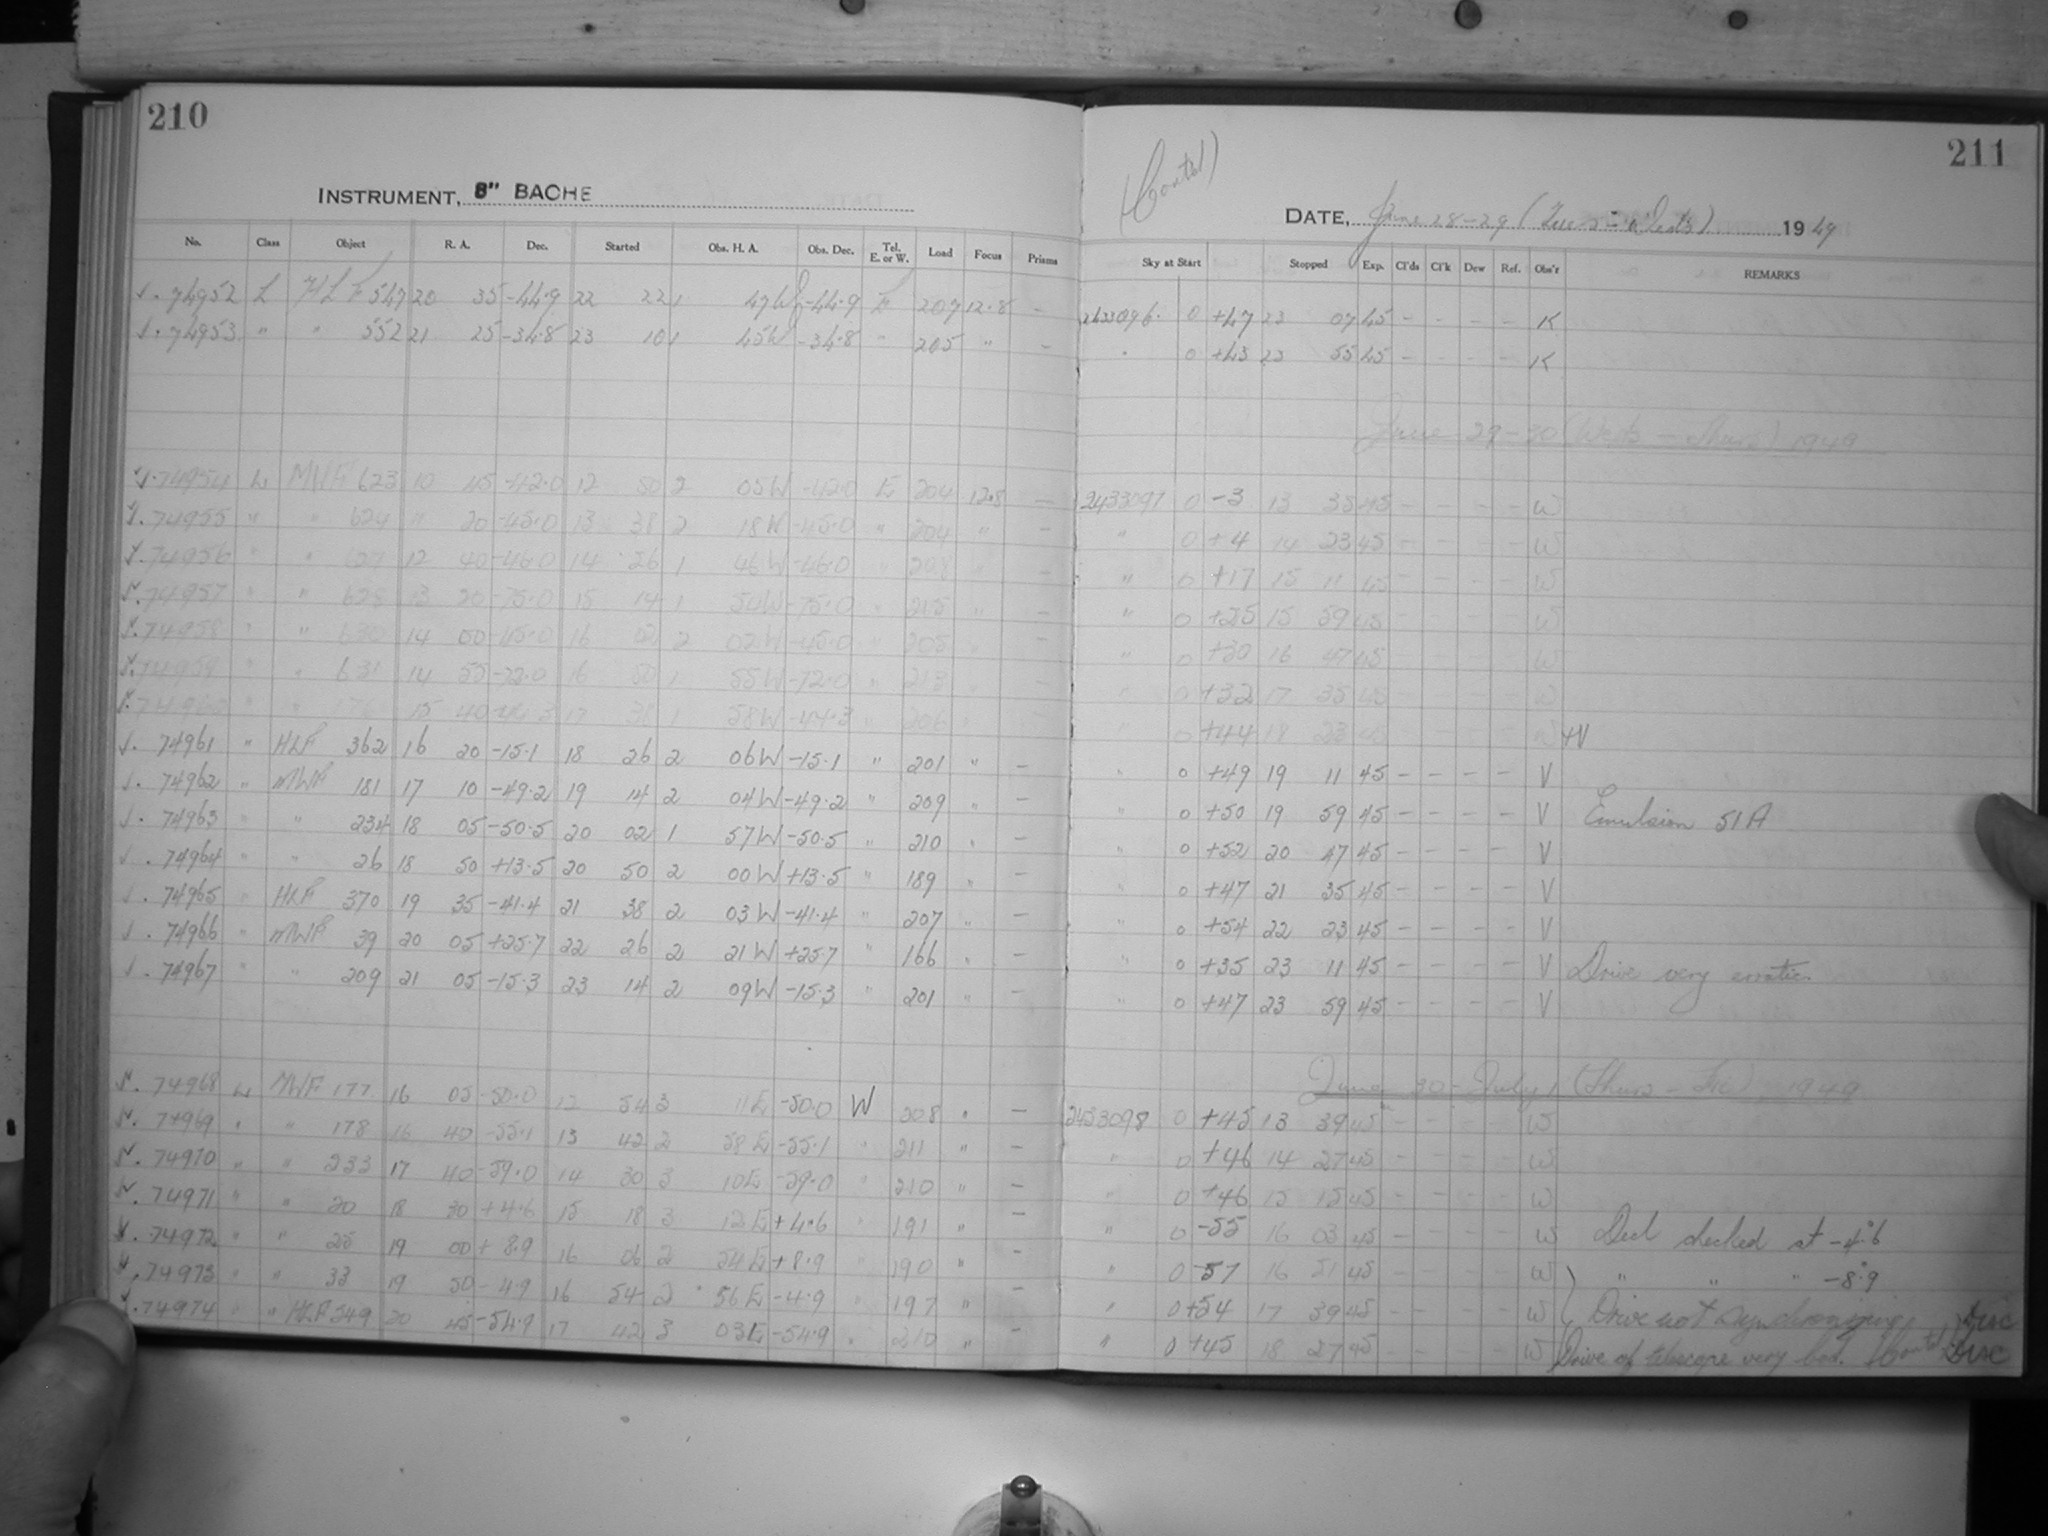 210
INSTRUMENT, 8" BACHE
No. Class Object R. A. Dec. Started Obs. H. A. Obs. Dec. Tel. E. or W. Load Focus Prisms
√. 74952 L HLF 547 20 35 -44.9 22 22 1 47W -44.9 E 207 12.8 -
√. 74953 " " 552 21 25 -34.8 23 10 1 45W -34.8 " 205 " -
√. 74954 L MWF 623 10 45 -42.0 12 50 2 05W -42.0 E 204 12.8 -
√. 74955 " " 624 " 20 -45.0 13 38 2 18W -45.0 " 204 " -
√. 74956 " " 12 40 -46.0 14 26 1 46W -46.0 " 208 " -
√. 74957 " " 13 20 -75.0 15 14 1 54W -75.0 " 215 " -
√. 74958 " " 630 14 00 -45.0 16 02 2 02W -45.0 " 205 " -
√. 74959 " " 631 14 55 -72.0 16 50 1 55W -72.0 " 213 " -
√. 74960 " " 15 40 -44.3 17 38 1 58W -44.3 " 206 " -
√. 74961 " HLF 362 16 20 -15.1 18 26 2 06W -15.1 " 201 " -
√. 74962 " MWF 181 17 10 -49.2 19 14 2 04W -49.2 " 209 " -
√. 74963 " " 234 18 05 -50.5 20 02 1 57W -50.5 " 210 " -
√. 74964 " " 26 18 50 +13.5 20 50 2 00W +13.5 " 189 " -
√. 74965 " HLF 370 19 35 -41.4 21 38 2 03W -41.4 " 207 " -
√. 74966 " MWF 39 20 05 +25.7 22 26 2 21W +25.7 " 166 " -
√. 74967 " " 209 21 05 -15.3 23 14 2 09W -15.3 " 201 " -
√. 74968 L MWF 177 16 05 -50.0 12 54 3 11E -50.0 W 208 " -
√. 74969 " " 178 16 40 -55.1 13 42 2 58E -55.1 " 211 " -
√. 74970 " " 233 17 40 -59.0 14 30 3 10E -59.0 " 210 " -
√. 74971 " " 20 18 30 +4.6 15 18 3 12E +4.6 " 191 " -
√. 74972 " " 25 19 00 +8.9 16 06 2 54E +8.9 " 190 "
√. 74973 " " 33 19 50 -4.9 16 54 2 56E -4.9 " 197 " -
√. 74974 " " HLF 349 20 45 -54.9 17 42 3 03E -54.9 " 210 " -
211
(Contd)
DATE, June 28-29 (Tues - Weds) 1949
Sky at Start Stopped Exp. Cl'ds Cl'k Dew Ref. Obs'r REMARKS
2433096. 0 +47 23 07 45 - - - - K
" 0 +43 23 55 45 - - - - K
June 29-30 (Weds - Thurs) 1949
2433097 0 -3 13 35 45 - - - - W
" 0 +4 14 23 45 - - - - W
" 0 +17 15 11 45 - - - - W
" 0 +25 15 59 45 - - - - W
" 0 +30 16 47 45 - - - - W
" 0 +32 17 35 45 - - - - W
" 0 +44 18 23 45 - - - - W +V
" 0 +49 19 11 45 - - - - V
" 0 +50 19 59 45 - - - - V Emulsion 51A
" 0 +52 20 47 45 - - - - V
" 0 +47 21 35 45 - - - - V
" 0 +54 22 23 45 - - - - V
" 0 +35 23 11 45 - - - - V Drive very erratic.
" 0 +47 23 59 45 - - - - V
June 30 - July 1 (Thurs - Fri) 1949
2433098 0 +45 13 39 45 - - - - W
" 0 +46 14 27 45 - - - - W
" 0 +46 15 15 45 - - - - W
" 0 -55 16 03 45 - - - - W Decl checked at -4°.6
" 0 -57 16 51 45 - - - - W " " " -8°.9
" 0 +54 17 39 45 - - - - W Drive not synchronizing Disc
" 0 +45 18 27 45 - - - - W Drive of telescope very bad. (Contd) Disc